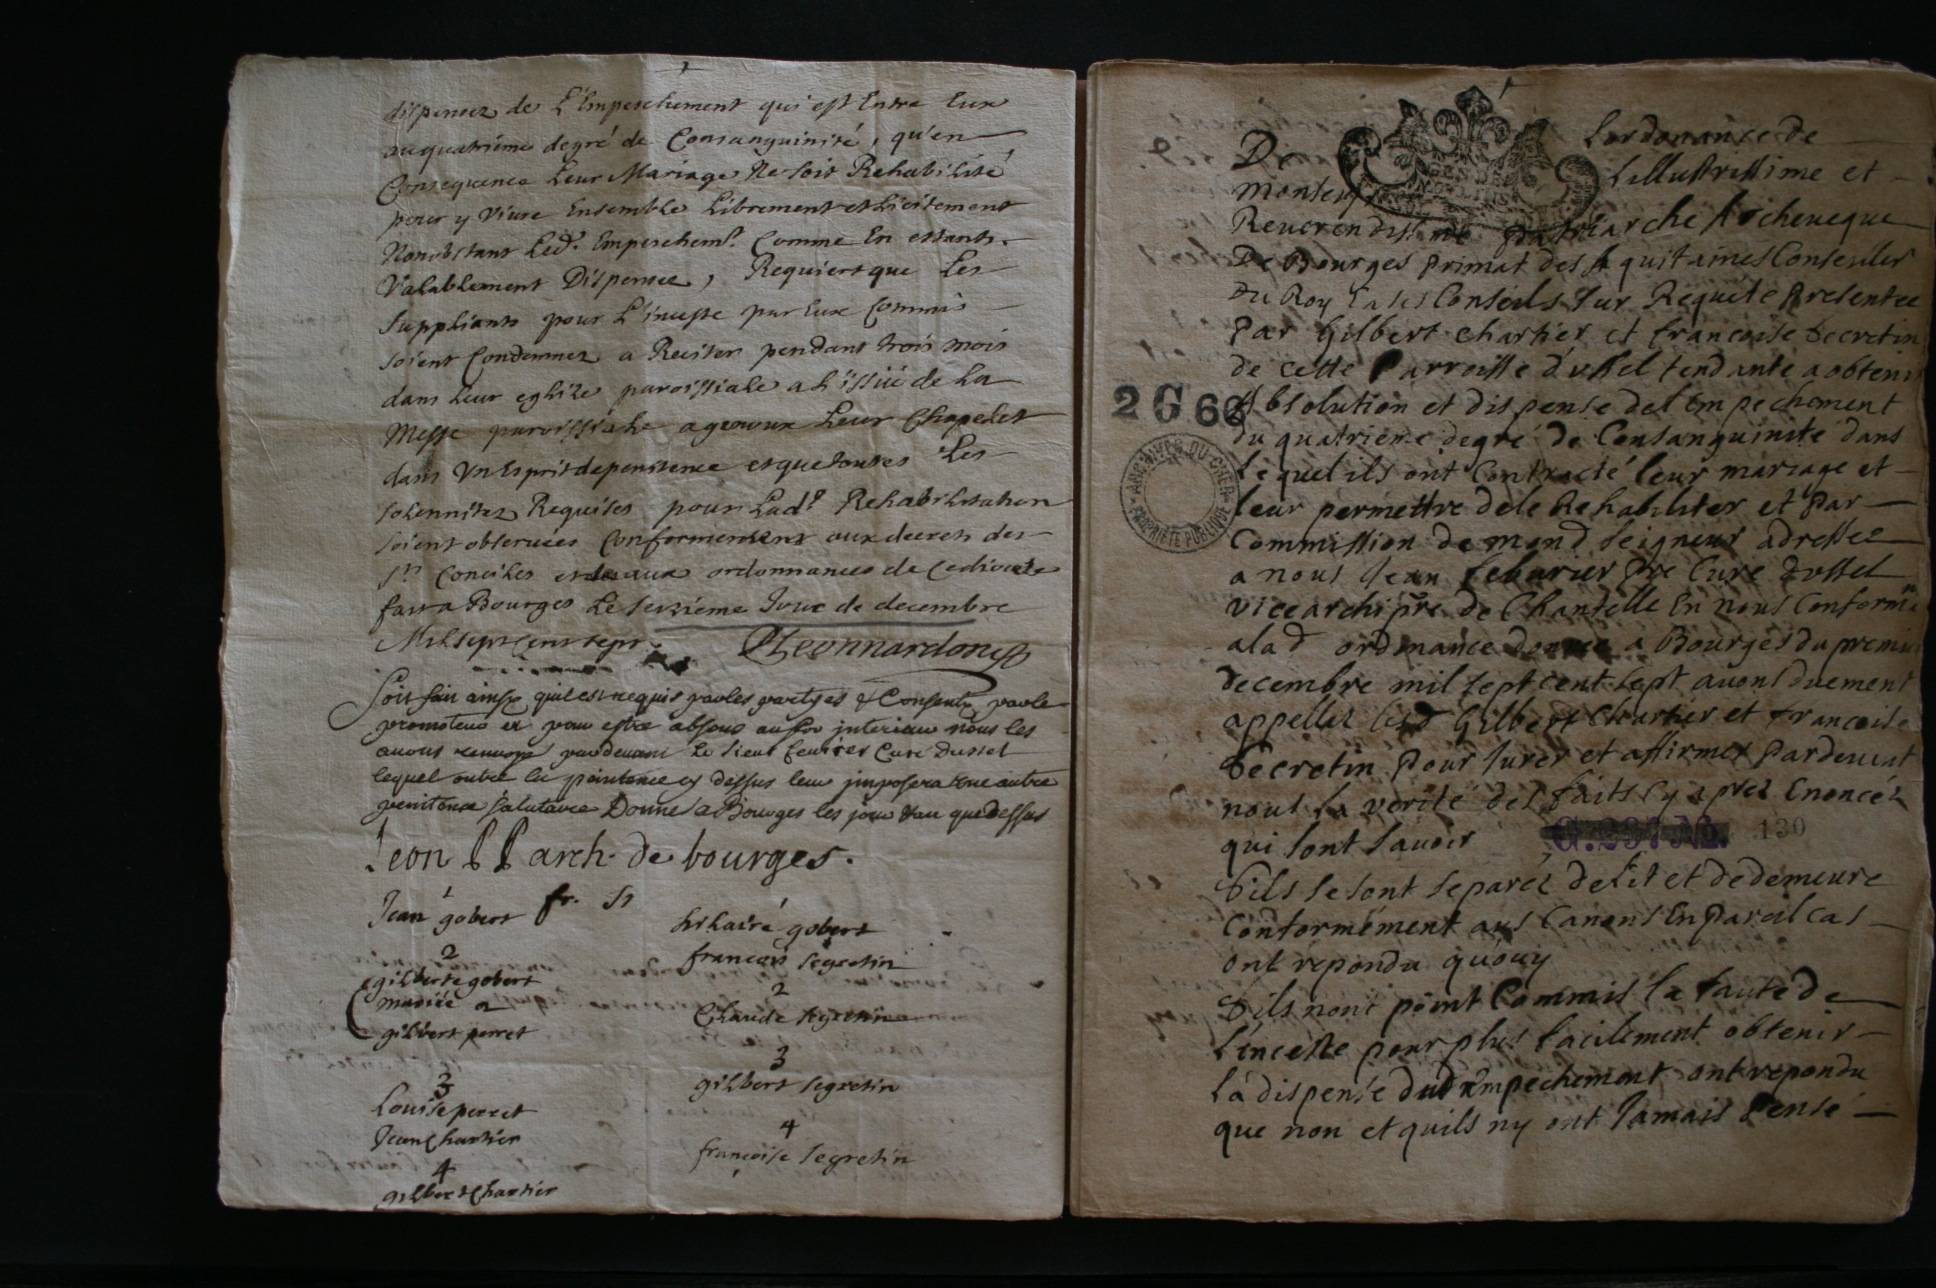 dispensez de L'Empeschement qui est Entre Eux
au quatriéme degré de Consanguinité, qu'en
Consequence Leur Mariage Ne soit Rehabilité
pour y Vivre Ensemble Librement et Licitement
Nonobstant Led.t Empeschem.t Comme En estants
Valablement Dispensez, Requiert que Les
Suppliants pour L'inceste par Eux Commis
soient Condemnez a Reciter pendant trois mois
dans Leur eglize paroissiale a L'issuë de La
Messe paroissiale a genoux Leur Chapelet
dans Un Esprit de penitence et que toutes Les
solennitez Requises pour Lad.e Rehabilitation
soient observées Conformement aux decrets des
sts Conciles et aux ordonnances de ce diocese
fait a Bourges Le seizieme Jour de decembre
Mil sept cent sept. Leonnardon
Soit fait ainsy quil est requis par les parties & Consenty par le
promoteur et pour estre absous au for interieur nous les
avons renvoyé pardevant le sieur feuvrier Curé Dussel
lequel outre la penitence cy dessus leur imposera une autre
penitence salutaire Donné a Bourges les jour & an que dessus
Leon PP arch. de bourges.
Jean gobert fr. Hilaire gobert
2 francois segretin
gilberte gobert 2
mariée a Claude segretin
gilbert perret 3
3 gilbert segretin
Louise perret 4
Jean Chartier françoise segretin
4
gilbert Chartier
De Lordonance de
Monseig Lillustrissime et
Reverendissime Patriarche Archeveque
De Bourges primat des Aquitaines Conseiler
Du Roy En ses Conseils sur Requete Presentee
Par Gilbert chartier et francoise Secretin
de cette Parroisse d'ussel tendante a obtenir
Absolution et dispense del Empechement
du quatrieme degré de Consanguinité dans
lequel ils ont Contracté leur mariage et
leur permettre de le Rehabiliter et Par
Commission de mond Seigneur adressee
a nous Jean feburier Pre Curé dussel
vicearchipre de Chantelle En nous Conform
a lad ordonance donnee a Bourges du premier
decembre mil sept cent sept avons duement
appellez lesd Gilbert Chartier et Francoise
Secretin pour Jurer et affirmer pardevant
nous la verité des faits Cy aprez Enoncéz
qui sont savoir
2 G 66
ARCHIVES DU CHER
PROPRIETE PUBLIQUE
G. 297 130
Sils se sont separéz de lit et de demeure
Conformément aus Canons En Pareil cas
ont repondu quouy
Sils nont point Commis la faute de
l'inceste pour plus facilement obtenir
la dispense dud Empechement ont repondu
que non et quils ny ont Jamais Pensé